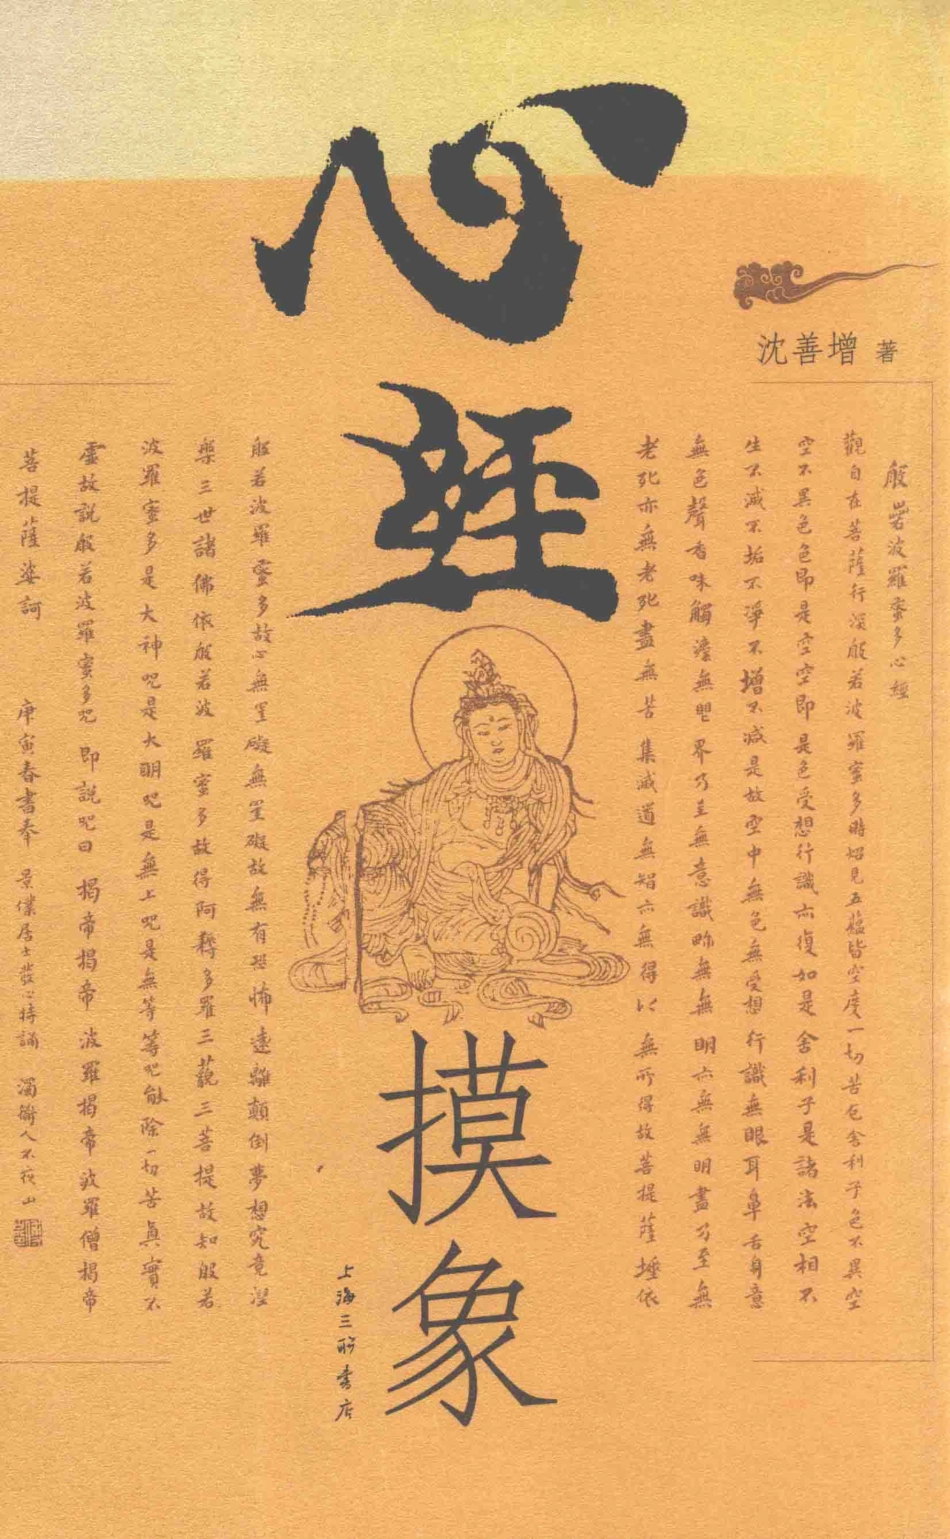 心經
摸象
沈善增 著
般若波羅蜜多心經
觀自在菩薩行深般若波羅蜜多時照見五蘊皆空度一切苦厄舍利子色不異空
空不異色色即是空空即是色受想行識亦復如是舍利子是諸法空相不
生不滅不垢不淨不增不減是故空中無色無受想行識無眼耳鼻舌身意
無色聲香味觸法無眼界乃至無意識界無無明亦無無明盡乃至無
老死亦無老死盡無苦集滅道無智亦無得以無所得故菩提薩埵依
般若波羅蜜多故心無罣礙無罣礙故無有恐怖遠離顛倒夢想究竟涅
槃三世諸佛依般若波羅蜜多故得阿耨多羅三藐三菩提故知般若
波羅蜜多是大神咒是大明咒是無上咒是無等等咒能除一切苦真實不
虛故說般若波羅蜜多咒即說咒曰揭帝揭帝波羅揭帝波羅僧揭帝
菩提薩婆訶 庚寅春書奉 居士發心持誦
上海三联书店